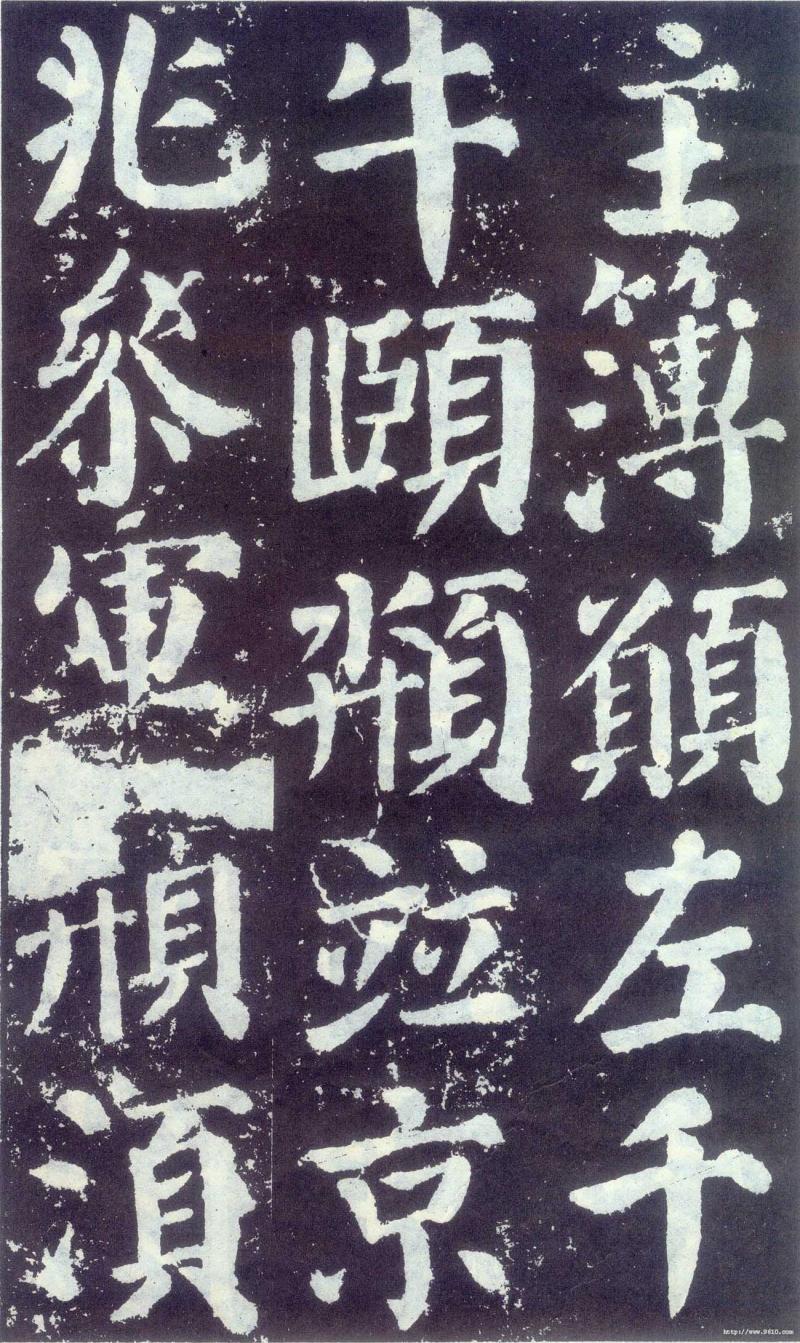 主簿願左千
牛頤並京
兆參軍須
http://www.9610.com